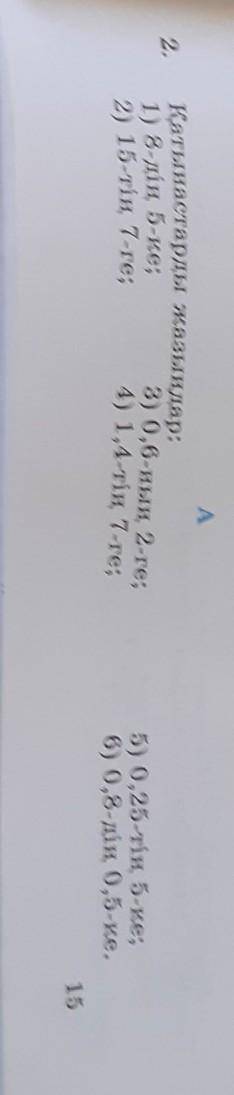 A
2. Қатынастарды жазыңдар:
1) 8-дің 5-ке; 3) 0,6-ның 2-ге; 5) 0,25-тің 5-ке;
2) 15-тің 7-ге; 4) 1,4-тің 7-ге; 6) 0,8-дің 0,5-ке.
15